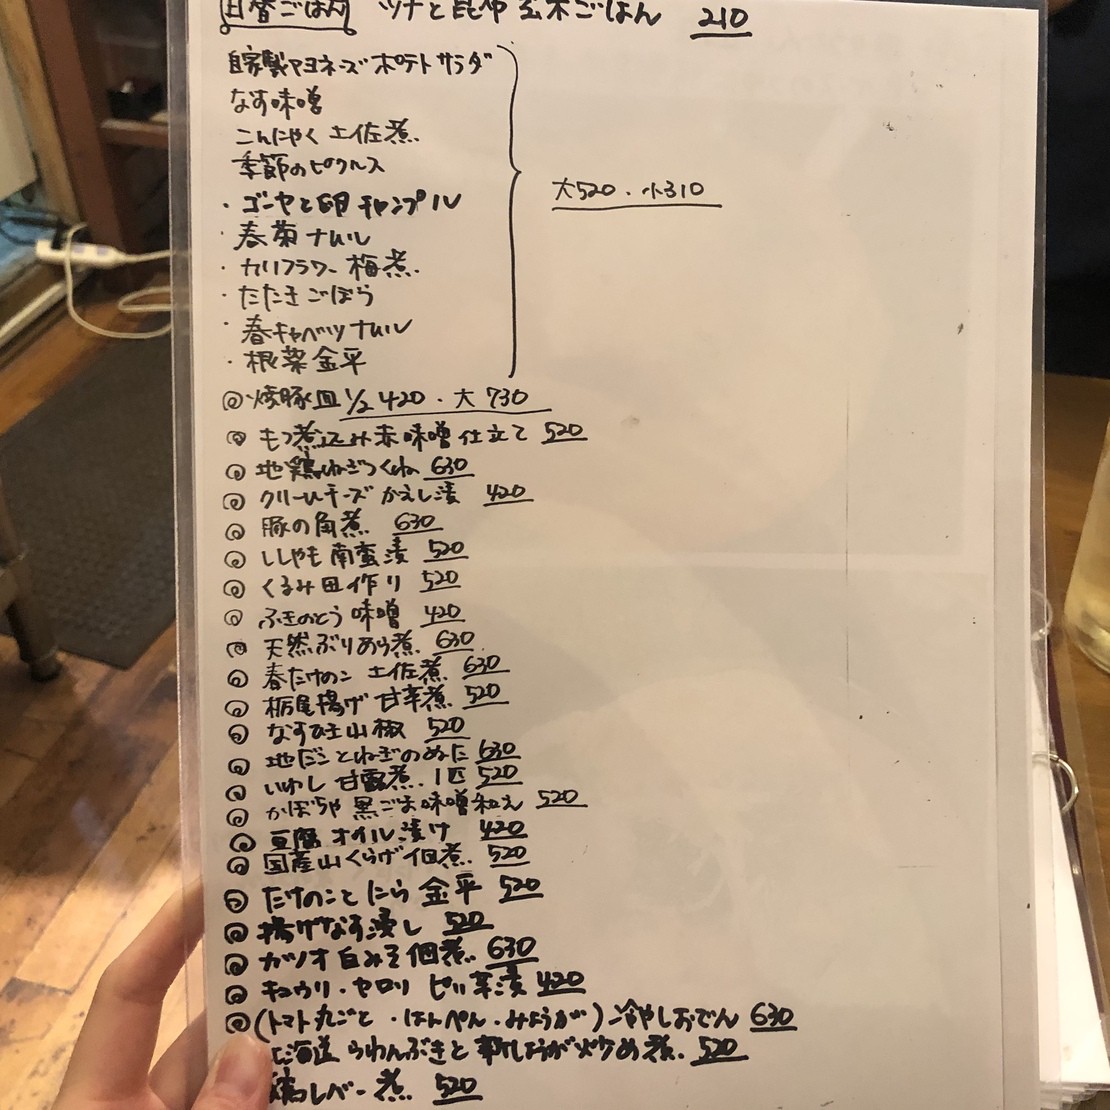 日替ごはん ツナと昆布 玄米ごはん 210
自家製マヨネーズポテトサラダ
なす味噌
こんにゃく土佐煮.
季節のピクルス
・ゴーヤと卵チャンプル
・春菊ナムル
・カリフラワー梅煮.
・たたきごぼう
・春キャベツナムル
・根菜金平
大520・小310
◎焼豚皿 1/2 420・大730
◎もつ煮込み赤味噌仕立て 520
◎地鶏ねぎつくね 630
◎クリームチーズかえし漬 420
◎豚の角煮. 630
◎ししゃも南蛮漬 520
◎くるみ田作り 520
◎ふきのとう味噌 420
◎天然ぶりあら煮. 630
◎春たけのこ 土佐煮. 630
◎栃尾揚げ甘辛煮. 520
◎なす山椒 520
◎地だことねぎのぬた 630
◎いわし甘露煮. 1匹 520
◎かぼちゃ黒ごま味噌和え 520
◎豆腐オイル漬け 420
◎国産山くらげ佃煮. 520
◎たけのことにら金平 520
◎揚げなす浸し 520
◎カツオ白みそ佃煮. 630
◎キュウリ・セロリ ピリ辛漬 420
◎(トマト丸ごと・はんぺん・みょうが)冷やしおでん 630
北海道 らわんぶきと新しょうが炒め煮. 520
鶏レバー煮. 520